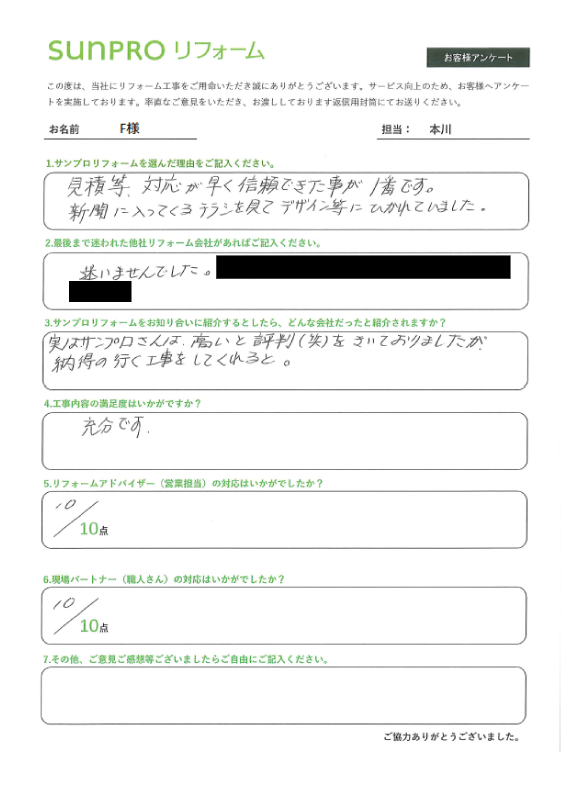 sunPRO リフォーム
お客様アンケート
この度は、当社にリフォーム工事をご用命いただき誠にありがとうございます。サービス向上のため、お客様へアンケー
トを実施しております。率直なご意見をいただき、お渡ししております返信用封筒にてお送りください。
お名前 F様 担当： 本川
1.サンプロリフォームを選んだ理由をご記入ください。
見積等、対応が早く信頼できた事が1番です。
新聞に入ってくるチラシを見てデザイン等にひかれていました。
2.最後まで迷われた他社リフォーム会社があればご記入ください。
迷いませんでした。
3.サンプロリフォームをお知り合いに紹介するとしたら、どんな会社だったと紹介されますか？
実はサンプロさんは、高いと評判(笑)をきいておりましたが、
納得の行く工事をしてくれると。
4.工事内容の満足度はいかがですか？
充分です.
5.リフォームアドバイザー（営業担当）の対応はいかがでしたか？
10/10点
6.現場パートナー（職人さん）の対応はいかがでしたか？
10/10点
7.その他、ご意見ご感想等ございましたらご自由にご記入ください。
ご協力ありがとうございました。